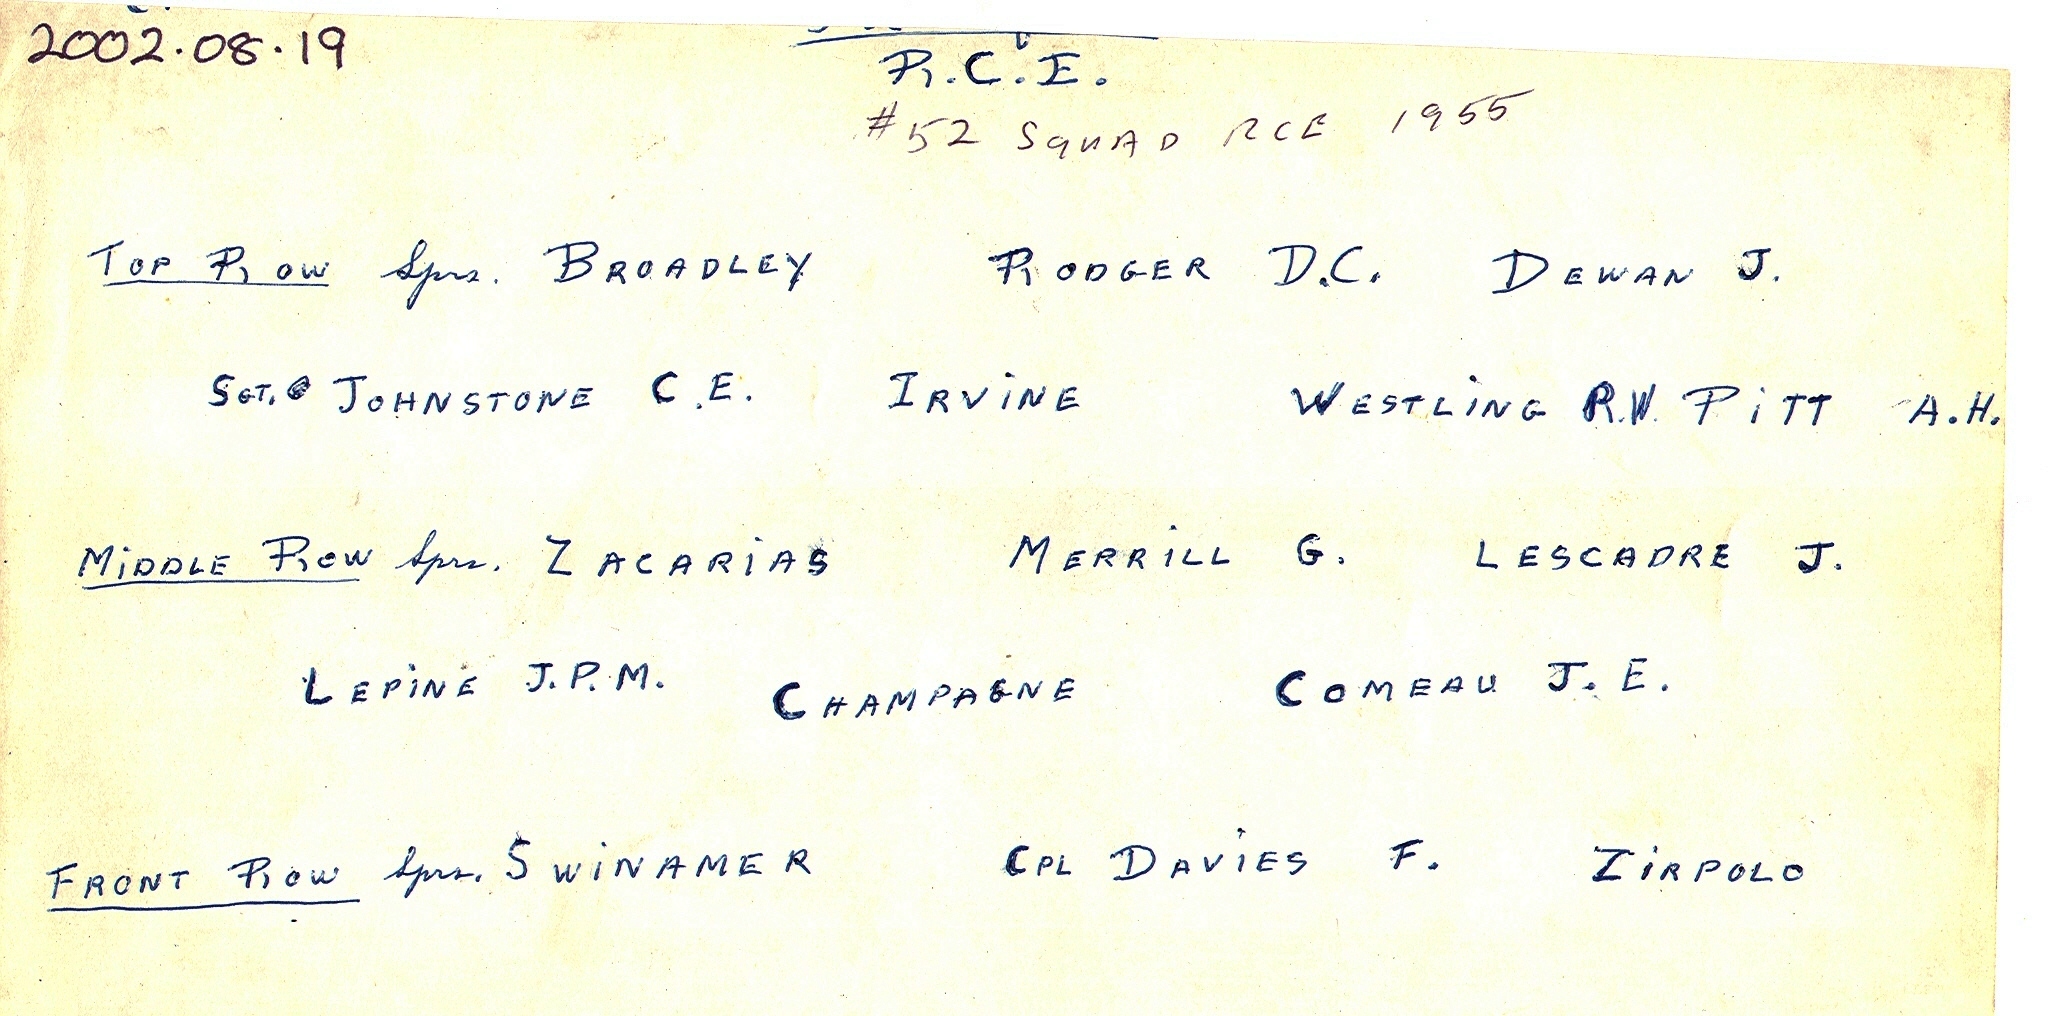 2002.08.19
R.C.E.
#52 SQUAD RCE 1955
TOP ROW Sprs. BROADLEY RODGER D.C. DEWAN J.
SGT. JOHNSTONE C.E. IRViNE WESTLiNG R.W. PiTT A.H.
MiDDLE ROW Sprs. ZACARiAS MERRiLL G. LESCADRE J.
LEPiNE J.P.M. CHAMPAGNE COMEAU J.E.
FRONT ROW Sprs. SWiNAMER CPL DAViES F. ZiRPOLO